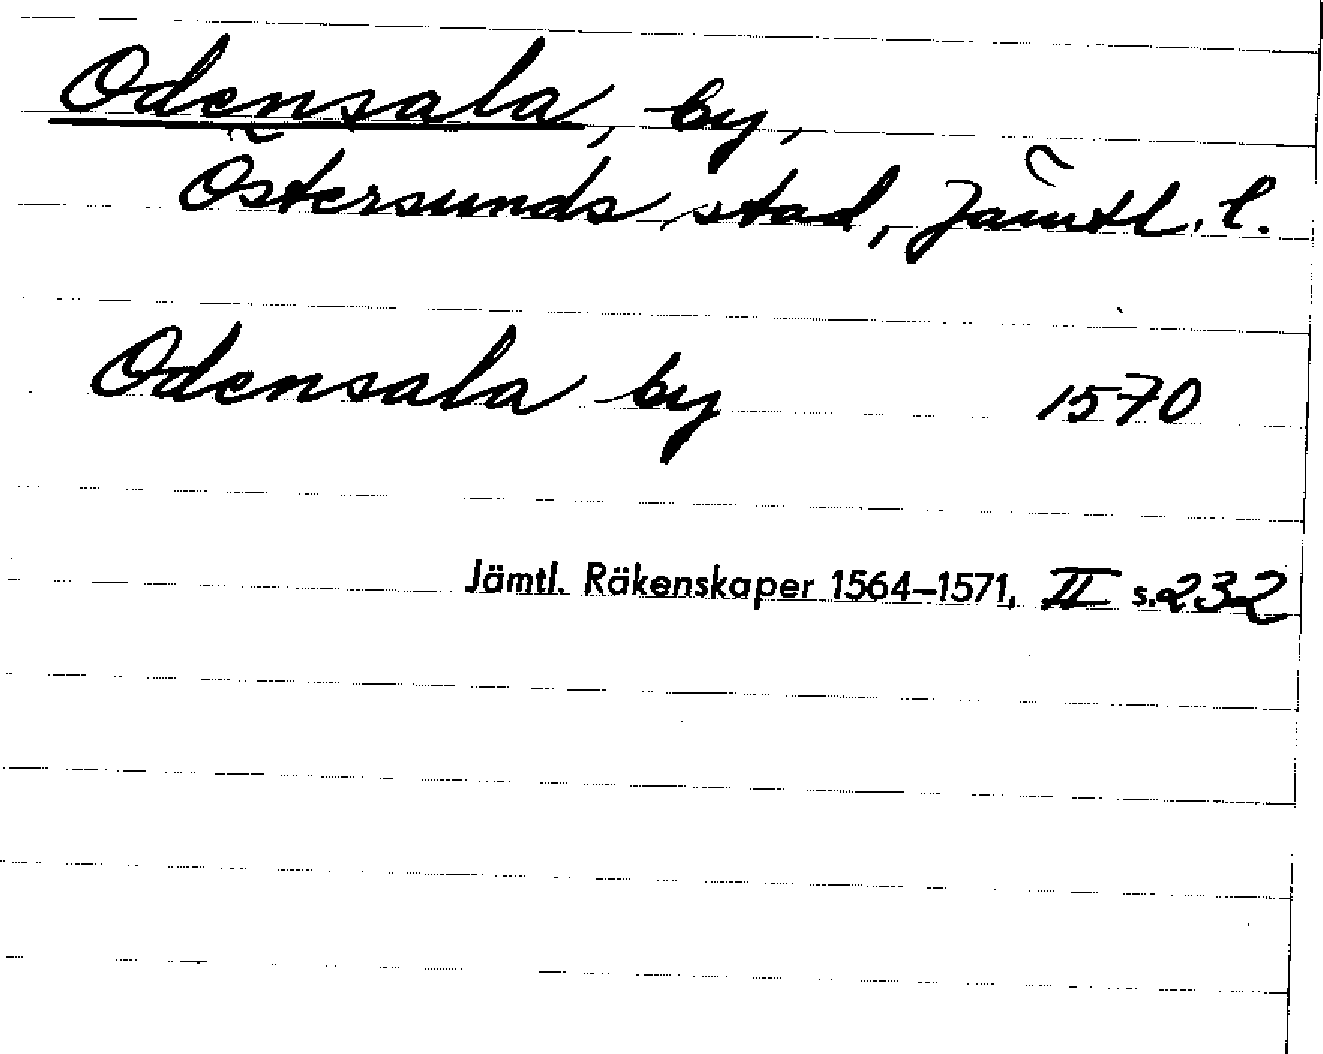 Odensala, by,
Östersunds stad, Jämtl. l.
Odensala by 1570
Jämtl. Räkenskaper 1564–1571, II s. 232